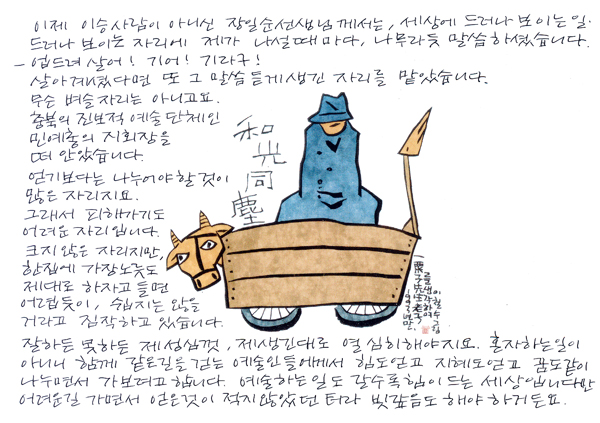 이제 이승사람이 아니신 장일순선생님께서는, 세상에 드러나 보이는 일·
드러나 보이는 자리에 제가 나설때마다, 나무라듯 말씀하셨습니다.
– 엎드려 살어! 기어! 기라구!
살아계셨다면 또 그 말씀 듣게생긴 자리를 맡았습니다.
무슨 벼슬자리는 아니고요.
충북의 진보적 예술단체인
민예총의 지회장을
떠 안았습니다.
얻기보다는 나누어야할것이
많은 자리지요.
그래서 피해가기도
어려운 자리입니다.
크지 않은 자리지만,
한집에 가장노릇도
제대로 하자고 들면
어렵듯이, 쉽지는 않을
거라고 짐작하고 있습니다.
和光同塵
잘하든 못하든 제성심껏, 제생긴대로 열심히해야지요. 혼자하는일이
아니니 함께 같은길을 걷는 예술인들에게서 힘도얻고 지혜도얻고 꿈도같이
나누면서 가보려고합니다. 예술하는일도 갈수록힘이드는 세상입니다만
어려운길 가면서 얻은것이 적지않았던 터라 빚갚음도 해야 하거든요.